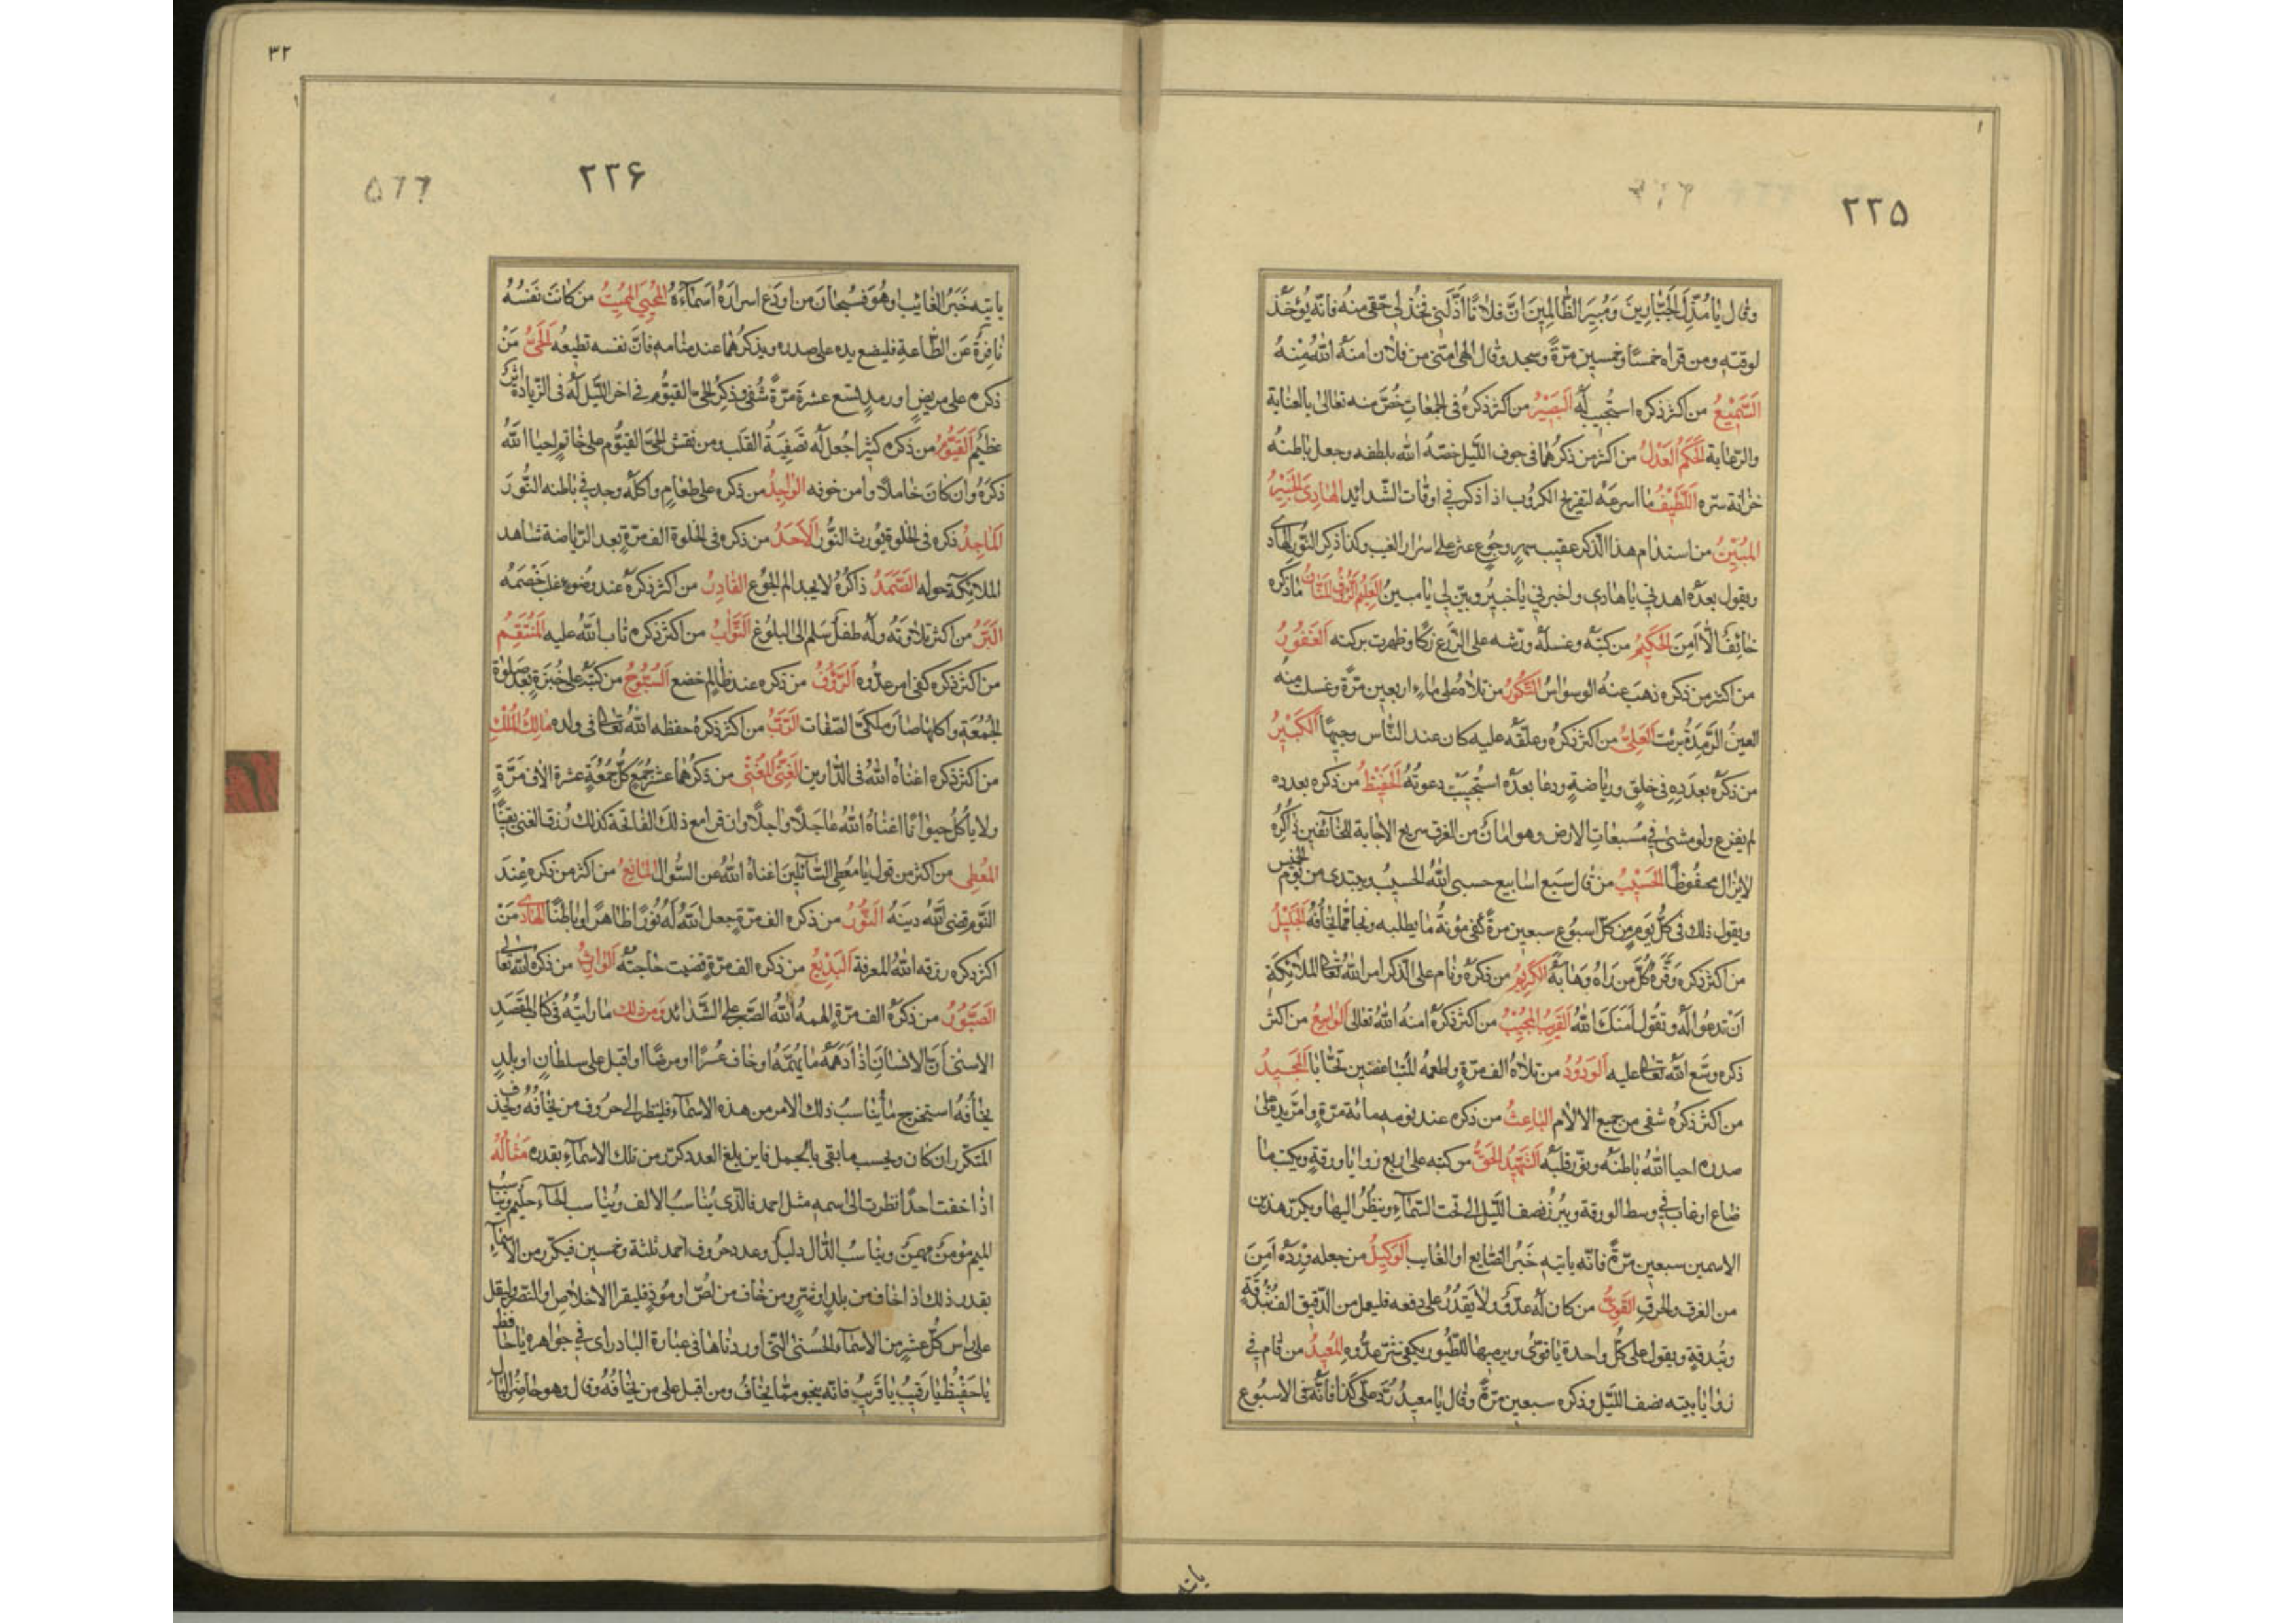 ٢٢٥
وقال يا مُذِلَّ الجَبّارينَ وَمُبيرَ الظّالِمينَ انَّ فلانًا اَذَلَّنى فَخُذْ لى حَقّى منهُ فانّه يُؤخَذ
لوقته ومن قراه خمسًا وخمسين مرّةً وسجد وقال الهى امنّى من فلان امنهُ اللّهُ مِنْهُ
السَّميْعُ من اكثر ذكره استُجيب لَهُ البَصيْرُ من اكثر ذكرهُ فى الجمعاتِ خُصَّ منه تعالى بالعناية
والرّعاية الحَكَمُ العَدْلُ من اكثر من ذكرهُما فى جوف اللّيل خصّهُ اللّه بلطفه وجعل باطنهُ
خزانة سرّه اللَّطيْفُ ما اسرعَهُ لتفريج الكروُب اذا ذكر فى اوقات الشّدائد الهادِى الخَبيْرُ
المُبيْنُ من استدام هذا الذّكر عقيب سهرٍ وجُوعٍ عثر على اسرار الغيب وكذا ذكر النّور الهادى
ويقول بعدَهُ اهدنى يا هادى واخبرنى يا خبيرُ وبيّن لى يا مبينُ
خائِفٌ الّا اَمِنَ الحَكيْمُ من كتبَهُ وغسلَهُ ورشّه على الزّرع زكا وظهرت بركته الغَفُورُ
من اكثر من ذكره ذهبَ عنهُ الوسواسُ الشَّكُورُ من تلاهُ على ماءٍ اربعين مرّةً وغسل منه
العينُ الرَّمِدَةُ برئت العَلِىُّ من اكثر ذكرهُ وعلّقه عليه كان عند النّاس وجيهًا الكَبيْرُ
من ذكرهُ بعدَدِهِ فى خلوةٍ ورياضةٍ ودعا بعدَهُ استُجيبَتْ دعوتُهُ الحَفيْظُ من ذكره بعدده
لم يفزع ولو مشى فى مَسبعاتِ الارض وهو امانٌ من الغرق سريع الاجابة للخآئفين ذاكرُهُ
لايزال محفُوظًا الحَسيْبُ من قال سَبع اسابيع حسبى اللّهُ الحسيبُ ويبتدى من يوم الخميس
ويقول ذلك فى كُلّ يَومٍ من كلّ اسبُوعٍ سبعين مرةً كُفى مؤنةُ ما يطلبه ونجا ممّا يخافُهُ الجَليْلُ
من اكثر ذكره وقّرهُ كُلُّ مَن رَاهُ وَهابَهُ الكَريْمُ من ذكرهُ ونام على الذّكر امر اللّهُ تعالى الملائكةَ
اَنْ تدعُوا لَهُ وتقُول اَمنَكَ اللّهُ القَريبُ المُجيْبُ من اكثر ذكرهُ امنهُ اللّهُ تعالى الواسِعُ من اكثر
ذكره وسّع اللّهُ تعالى عليه الوَدُودُ من تلاهُ الف مرّةٍ واطعمهُ المُتَباغضَين تَحابّا المَجيْدُ
من اكثر ذكرُه شفى من جميع الالام الباعِثُ من ذكره عند نومه مائة مرّةٍ وامرّ يده على
صدره احيا اللّهُ باطنَهُ ونوّر قلبَهُ الشَّهيْدُ الحَقُّ من كتبه على اربع زوايا ورقةٍ ويكتب ما
ضاع او غاب فى وسط الورقة ويبرُز نصف اللّيل الى تحت السّمآءِ وينظُرُ اليها ويكرّر هذين
الاسمين سبعين مرّةً فانّه ياتيه خَبَرُ الضّايع او الغايب الوَكيْلُ من جعله وِرْدَهُ اَمِنَ
من الغرق والحرق القَوِىُّ من كان لَهُ عدوٌّ ولا يَقدُرُ على دفعه فليعمل من الدّقيق الف بُندُقةٍ
وبُندقةٍ ويقول على كُلّ واحدة يا قوىُّ ويرميها للطّيور يكفى شرَّ عدُوّهِ المُعيدُ من قام فى
زوايا بيته نصف اللّيل وذكره سبعين مرّةً وقال يا معيدُ رُدَّ علىّ كذا فانَّه فى الاسبُوع
ياتيه
٣٢
٢٢۶
۵٦٦
ياتيه خَبَرُ الغائِب او هُوَ فسُبحانَ من اودَع اسرارَهُ اسَمآءَهُ المُحْيِىْ المُميْتُ من كانَتْ نَفْسُهُ
نافِرَةً عَنِ الطّاعةِ فليضع يده على صدره ويذكرهُما عند منامه فانَّ نفسه تطيعهُ الحَىُّ مَنْ
ذكره على مريضٍ او رمدٍ تسَع عشرةَ مَرّةً شُفى وذِكرُ الحىِّ القيُّوم فى اخر اللّيل لَهُ فى الزّيادةِ اثرٌ
عظيمٌ القَيُّوْمُ من ذكره كثيرا جُعل لَهُ تَصفِيَةُ القَلب ومن نقش الحىَّ القيُّوم على خاتمٍ احيا اللّهُ
ذكرَهُ وان كانَ خاملًا وامن خوفه الواجِدُ من ذكره على طعامٍ واكلَهُ وجد فى باطنه النُّورَ
المَاجِدُ ذكره فى الخلوة يُورِث النُّورَ الاَحَدُ من ذكره فى الخلوة الف مرّةٍ بعد الرّياضة شاهد
الملائكةَ حولَه الصَّمَدُ ذاكرُهُ لا يجد الم الجُوعِ القادِرُ من اكثر ذكرَهُ عند وضوءه غلبَ خَصْمَهُ
البَرُّ من اكثر تلاوتَهُ ولَهُ طفلٌ سَلم الى البلُوغ التَّوّابُ من اكثر ذكره تاب اللّهُ عليه المُنْتَقِمُ
من اكثر ذكره كفى امر عدُوّه الرَّؤُوفُ من ذكره عند ظالمٍ خضع السُّبُّوحُ من كتبَهُ على خُبزةٍ بعد صلوة
الجُمُعَةِ واكلها صارَ ملكىَّ الصّفات الرَّبُّ من اكثر ذكرَهُ حفظه اللّهُ تعالى فى ولده مالِكُ المُلْكِ
من اكثر ذكره اغناهُ اللّهُ فى الدّارين الغَنِىُّ المُغْنِى من ذكرهُما عشرَ جُمَعٍ كُلَّ جُمُعَةٍ عشرة الاف مَرّةٍ
ولا ياكُلُ حيوانًا اغناهُ اللّهُ عاجلًا واجلًا وان قرا مع ذلك الفاتحة كذلك رُزق الغنى يقينًا
المُعْطِى من اكثر من قول يا مُعطِىَ السّآئلِينَ اغناه اللّهُ عن السُّوالِ المانِعُ من اكثر من ذكره عِنْدَ
النّوم قضى اللّهُ دينَهُ النُّوْرُ من ذكره الف مرّةٍ جعل اللّهُ لَهُ نُورًا ظاهرًا وباطنًا الهادى مَنْ
اكثر ذكره رزقه اللّهُ المعرفة البَديْعُ من ذكره الف مرّةٍ قضيت حاجتُهُ الوارِثُ من ذكره اللّه تعالى
الصَّبُوْرُ من ذكرهُ الف مرّةٍ الهمهُ اللّهُ الصّبرَ على الشّدائد ومن ذلك ما رايتهُ فى كتاب المقصَد
الاسنى اَنَّ الانسانَ اِذا اَدهَمَهُ ما يُهمُّهُ او خاف عُسرًا او مرضًا او اقبل على سلطانٍ او بلدٍ
يخافُهُ استخرج ما يُناسبُ ذلك الامر من هذه الاسمآءِ فلينظر الى حرُوف من يخافُهُ ويحذف
المتكرّر ان كان ويحسب ما بقى بالجمل فاين بلغ العدد كرّر من تلك الاسمآءِ بقدره مثالُهُ
اذا خفت احدًا نظرت الى اسمه مثل احمد فالّذى يُناسبُ الالف ويُناسب الحآءَ حليم ويُناسبُ
الميم مؤمن مهيمن ويُناسبُ الدّال دليلٌ وعدد حرُوف احمد ثلثة وخمسين فيكرّر من الاسمآءِ
بقدر ذلك اذا خاف من بلدٍ او شرٍّ ومن خاف من لصّ او مُوذٍ فليقرا الاخلاص او النّصر وليقل
على راس كُلّ عشرٍ من الاسمآء الحُسنى الّتى اوردناها فى عبارة البادراى فى جواهره يا حافظ
يا حَفيْظُ يا رَقيبُ يا قَريبُ فانّه ينجو ممّا يخافُ ومن اقبل على من يخافُهُ وقال وهو حاضِرُ